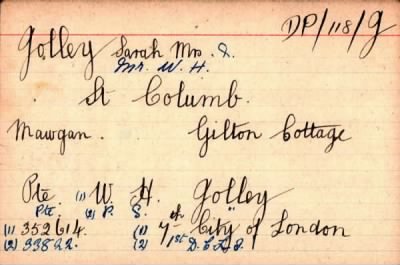 DP/118/G
Golley Sarah Mrs. &
Mr. W. H.
St Columb.
Mawgan. Gilton Cottage
Pte. (1) W. H. Golley
Pte. (2) P. S. "
(1) 352614. (1) 7th City of London
(2) 33822. (2) 1st D.C.L.I.